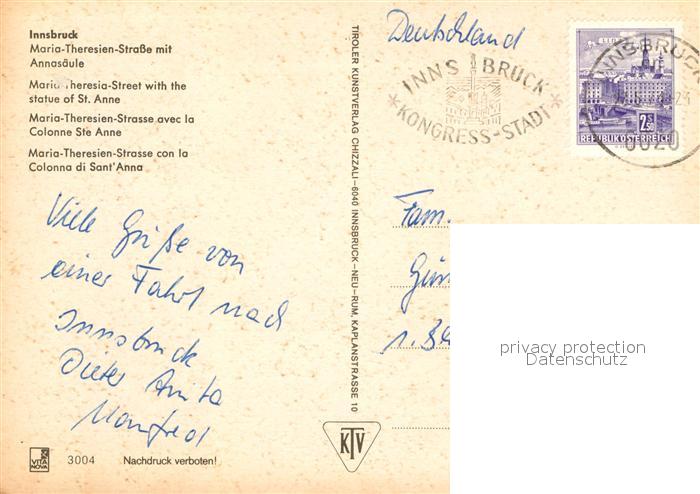 Innsbruck
Maria-Theresien-Straße mit
Annasäule
Maria-Theresia-Street with the
statue of St. Anne
Maria-Theresien-Strasse avec la
Colonne Ste Anne
Maria-Theresien-Strasse con la
Colonna di Sant'Anna
Viele Grüße von
einer Fahrt nach
Innsbruck
Dieter Anita
Manfred
VITA
NOVA
3004 Nachdruck verboten!
TIROLER KUNSTVERLAG CHIZZALI-6040 INNSBRUCK-NEU-RUM, KAPLANSTRASSE 10
KTV
Deutschland
INNSBRUCK
*KONGRESS-STADT*
LINZ
2.50
REPUBLIK ÖSTERREICH
INNSBRUCK
6020
Fam.
Gün
privacy protection
Datenschutz